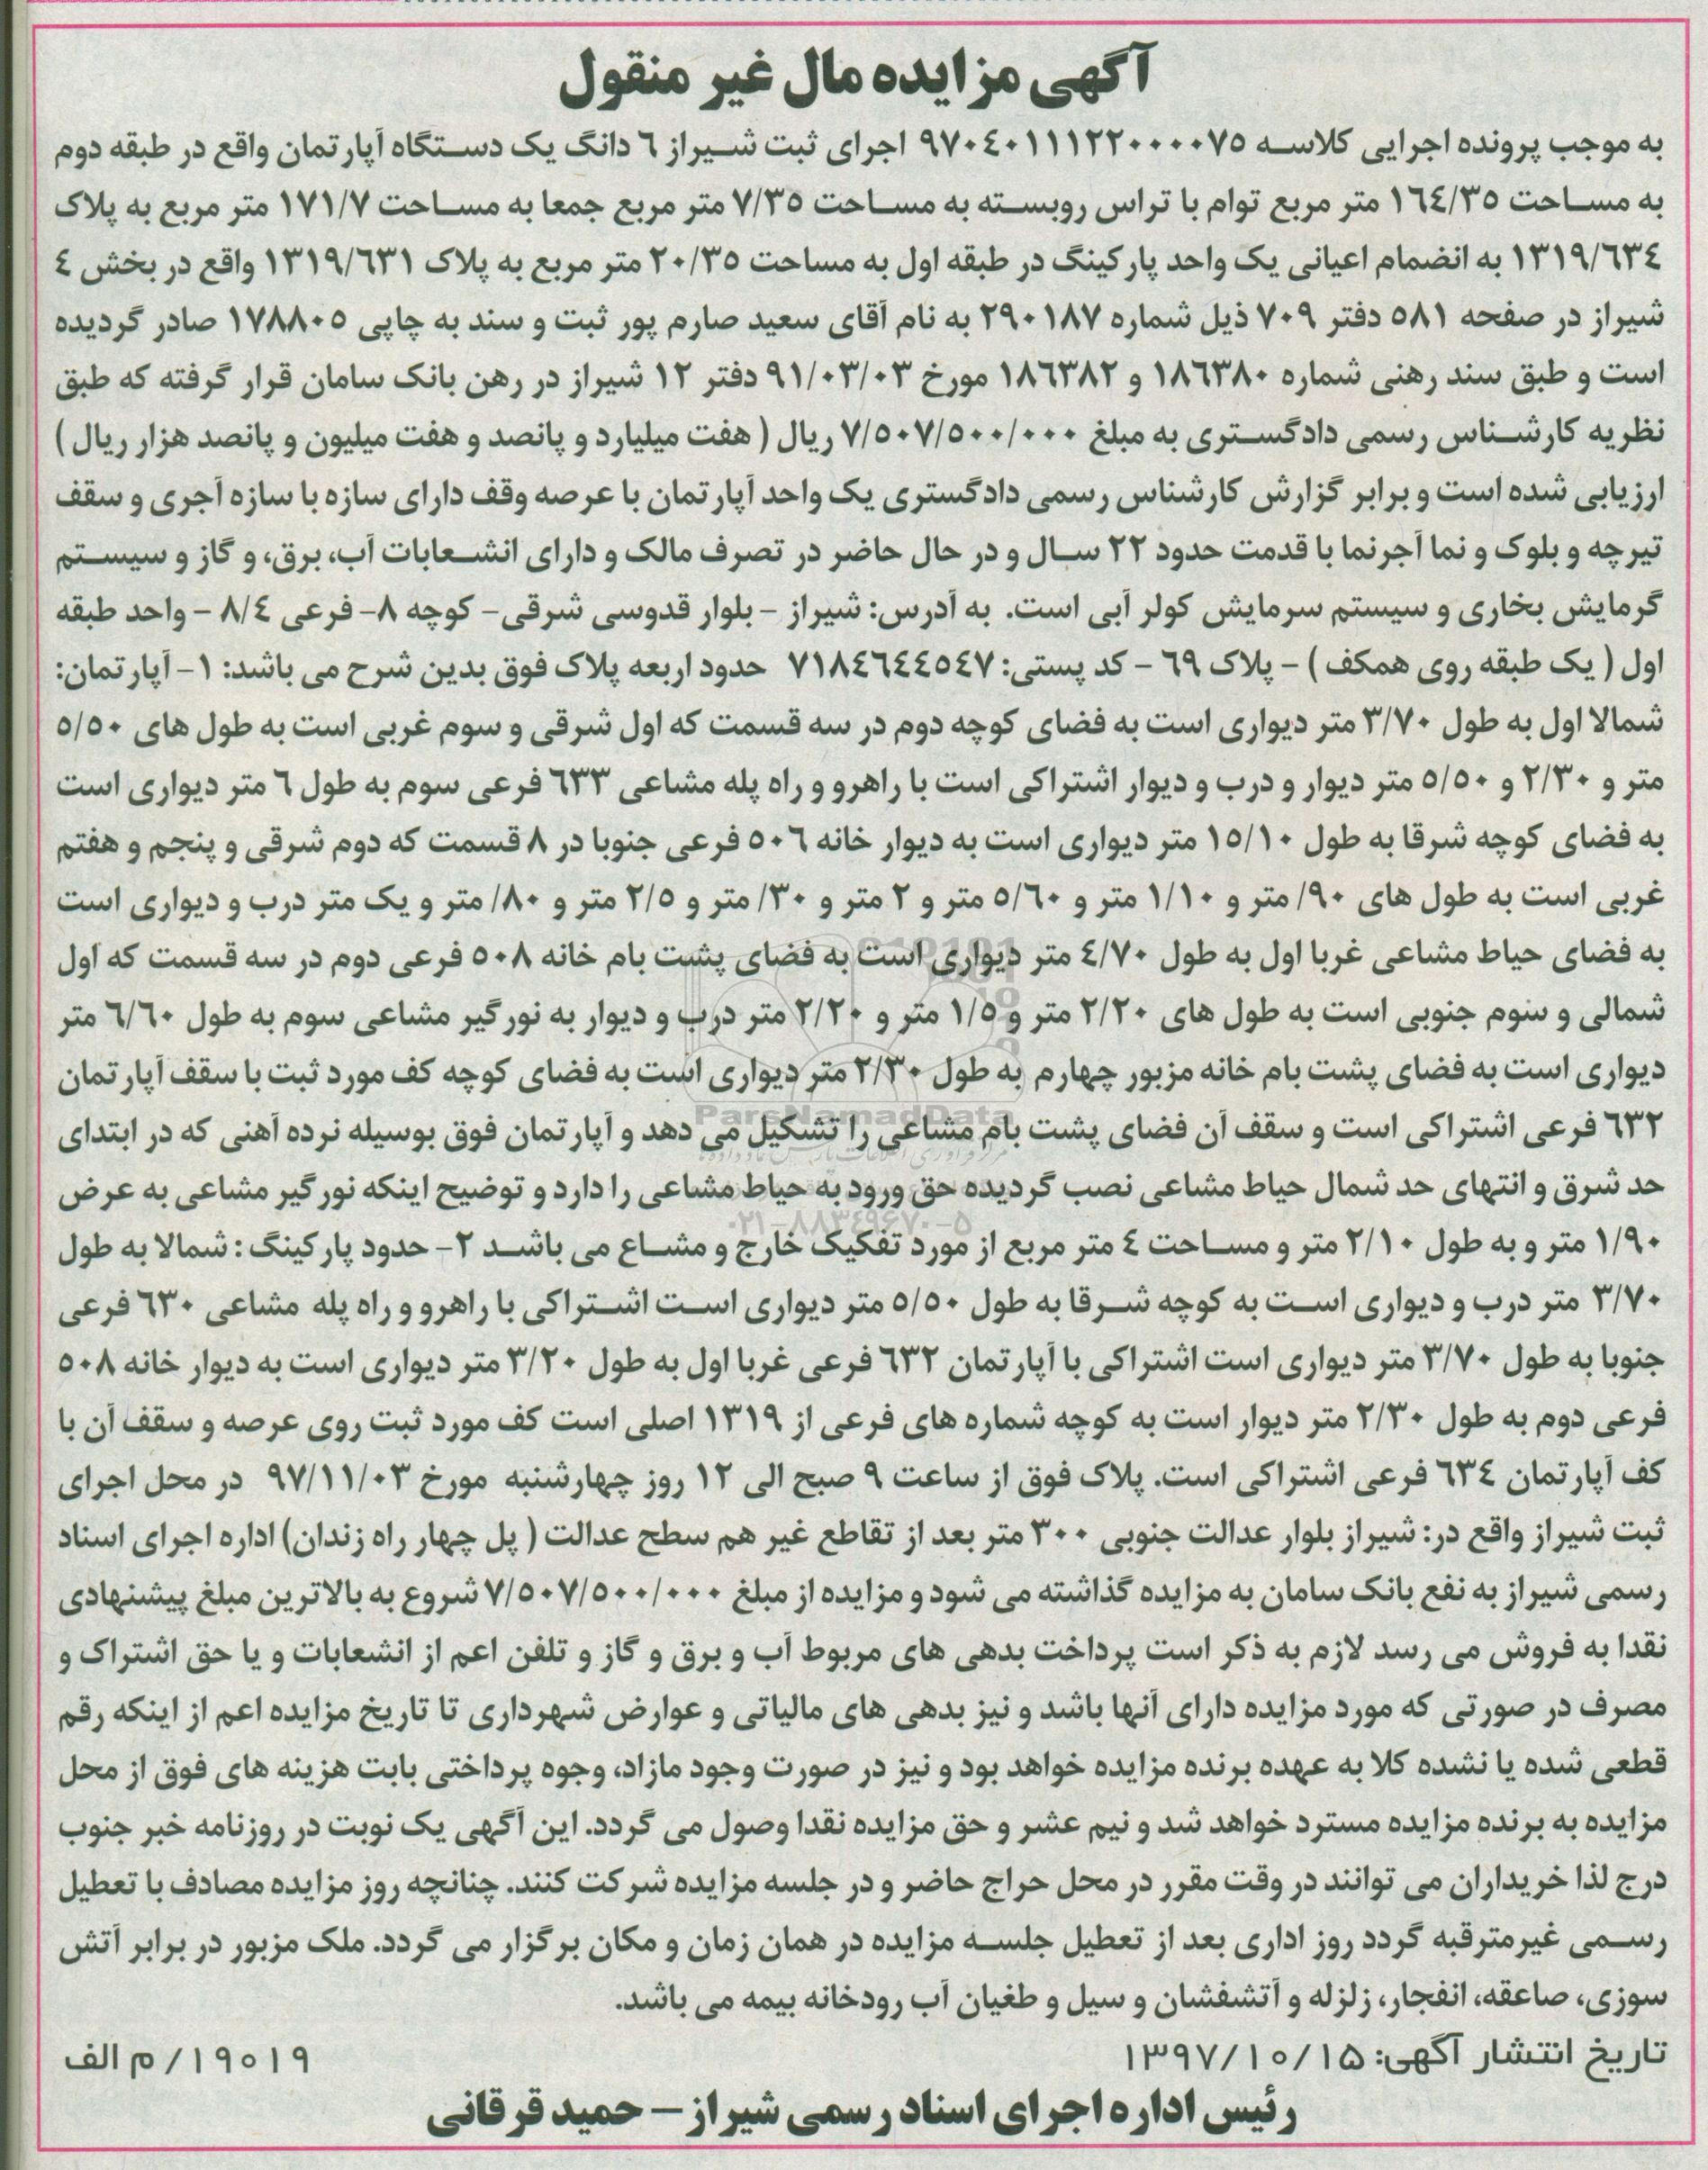 آگهی مزایده مال غیر منقول
به موجب پرونده اجرایی کلاسه ۹۷۰۴۰۱۱۱۲۲۰۰۰۰۷۵ اجرای ثبت شیراز ۶ دانگ یک دستگاه آپارتمان واقع در طبقه دوم
به مساحت ۱۶۴/۳۵ متر مربع توام با تراس روبسته به مساحت ۷/۳۵ متر مربع جمعا به مساحت ۱۷۱/۷ متر مربع به پلاک
۱۳۱۹/۶۳۴ به انضمام اعیانی یک واحد پارکینگ در طبقه اول به مساحت ۲۰/۳۵ متر مربع به پلاک ۱۳۱۹/۶۳۱ واقع در بخش ۴
شیراز در صفحه ۵۸۱ دفتر ۷۰۹ ذیل شماره ۲۹۰۱۸۷ به نام آقای سعید صارم پور ثبت و سند به چاپی ۱۷۸۸۰۵ صادر گردیده
است و طبق سند رهنی شماره ۱۸۶۳۸۰ و ۱۸۶۳۸۲ مورخ ۹۱/۰۳/۰۳ دفتر ۱۲ شیراز در رهن بانک سامان قرار گرفته که طبق
نظریه کارشناس رسمی دادگستری به مبلغ ۷/۵۰۷/۵۰۰/۰۰۰ ریال ( هفت میلیارد و پانصد و هفت میلیون و پانصد هزار ریال )
ارزیابی شده است و برابر گزارش کارشناس رسمی دادگستری یک واحد آپارتمان با عرصه وقف دارای سازه با سازه آجری و سقف
تیرچه و بلوک و نما آجرنما با قدمت حدود ۲۲ سال و در حال حاضر در تصرف مالک و دارای انشعابات آب، برق، و گاز و سیستم
گرمایش بخاری و سیستم سرمایش کولر آبی است. به آدرس: شیراز - بلوار قدوسی شرقی- کوچه ۸- فرعی ۸/۴ - واحد طبقه
اول ( یک طبقه روی همکف ) - پلاک ۶۹ - کد پستی: ۷۱۸۴۶۴۴۵۴۷ حدود اربعه پلاک فوق بدین شرح می باشد: ۱- آپارتمان:
شمالا اول به طول ۳/۷۰ متر دیواری است به فضای کوچه دوم در سه قسمت که اول شرقی و سوم غربی است به طول های ۵/۵۰
متر و ۲/۳۰ و ۵/۵۰ متر دیوار و درب و دیوار اشتراکی است با راهرو و راه پله مشاعی ۶۳۳ فرعی سوم به طول ۶ متر دیواری است
به فضای کوچه شرقا به طول ۱۵/۱۰ متر دیواری است به دیوار خانه ۵۰۶ فرعی جنوبا در ۸ قسمت که دوم شرقی و پنجم و هفتم
غربی است به طول های ۹۰/ متر و ۱/۱۰ متر و ۵/۶۰ متر و ۲ متر و ۳۰/ متر و ۲/۵ متر و ۸۰/ متر و یک متر درب و دیواری است
به فضای حیاط مشاعی غربا اول به طول ۴/۷۰ متر دیواری است به فضای پشت بام خانه ۵۰۸ فرعی دوم در سه قسمت که اول
شمالی و سوم جنوبی است به طول های ۲/۲۰ متر و ۱/۵ متر و ۲/۲۰ متر درب و دیوار به نورگیر مشاعی سوم به طول ۶/۶۰ متر
دیواری است به فضای پشت بام خانه مزبور چهارم به طول ۲/۳۰ متر دیواری است به فضای کوچه کف مورد ثبت با سقف آپارتمان
۶۳۲ فرعی اشتراکی است و سقف آن فضای پشت بام مشاعی را تشکیل می دهد و آپارتمان فوق بوسیله نرده آهنی که در ابتدای
حد شرق و انتهای حد شمال حیاط مشاعی نصب گردیده حق ورود به حیاط مشاعی را دارد و توضیح اینکه نورگیر مشاعی به عرض
۱/۹۰ متر و به طول ۲/۱۰ متر و مساحت ۴ متر مربع از مورد تفکیک خارج و مشاع می باشد ۲- حدود پارکینگ : شمالا به طول
۳/۷۰ متر درب و دیواری است به کوچه شرقا به طول ۵/۵۰ متر دیواری است اشتراکی با راهرو و راه پله مشاعی ۶۳۰ فرعی
جنوبا به طول ۳/۷۰ متر دیواری است اشتراکی با آپارتمان ۶۳۲ فرعی غربا اول به طول ۳/۲۰ متر دیواری است به دیوار خانه ۵۰۸
فرعی دوم به طول ۲/۳۰ متر دیوار است به کوچه شماره های فرعی از ۱۳۱۹ اصلی است کف مورد ثبت روی عرصه و سقف آن با
کف آپارتمان ۶۳۴ فرعی اشتراکی است. پلاک فوق از ساعت ۹ صبح الی ۱۲ روز چهارشنبه مورخ ۹۷/۱۱/۰۳ در محل اجرای
ثبت شیراز واقع در: شیراز بلوار عدالت جنوبی ۳۰۰ متر بعد از تقاطع غیر هم سطح عدالت ( پل چهار راه زندان) اداره اجرای اسناد
رسمی شیراز به نفع بانک سامان به مزایده گذاشته می شود و مزایده از مبلغ ۷/۵۰۷/۵۰۰/۰۰۰ شروع به بالاترین مبلغ پیشنهادی
نقدا به فروش می رسد لازم به ذکر است پرداخت بدهی های مربوط آب و برق و گاز و تلفن اعم از انشعابات و یا حق اشتراک و
مصرف در صورتی که مورد مزایده دارای آنها باشد و نیز بدهی های مالیاتی و عوارض شهرداری تا تاریخ مزایده اعم از اینکه رقم
قطعی شده یا نشده کلا به عهده برنده مزایده خواهد بود و نیز در صورت وجود مازاد، وجوه پرداختی بابت هزینه های فوق از محل
مزایده به برنده مزایده مسترد خواهد شد و نیم عشر و حق مزایده نقدا وصول می گردد. این آگهی یک نوبت در روزنامه خبر جنوب
درج لذا خریداران می توانند در وقت مقرر در محل حراج حاضر و در جلسه مزایده شرکت کنند. چنانچه روز مزایده مصادف با تعطیل
رسمی غیرمترقبه گردد روز اداری بعد از تعطیل جلسه مزایده در همان زمان و مکان برگزار می گردد. ملک مزبور در برابر آتش
سوزی، صاعقه، انفجار، زلزله و آتشفشان و سیل و طغیان آب رودخانه بیمه می باشد.
تاریخ انتشار آگهی: ۱۳۹۷/۱۰/۱۵
۱۹۰۱۹/ م الف
رئیس اداره اجرای اسناد رسمی شیراز – حمید قرقانی
ParsNamadData
۰۲۱-۸۸۳۴۹۶۷۰-۵